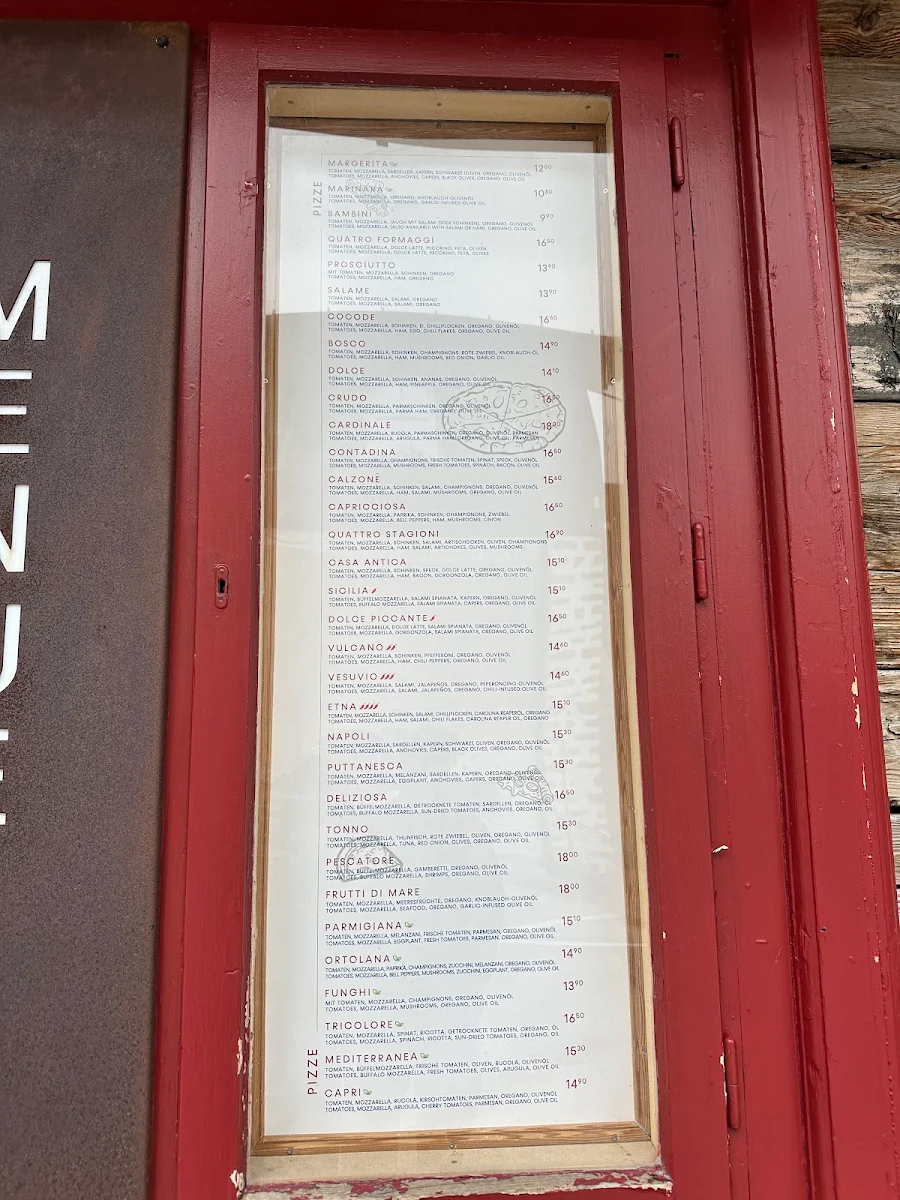 MENUE
PIZZE
MARGERITA 12⁶⁰
TOMATEN, MOZZARELLA, SARDELLEN, KAPERN, SCHWARZE OLIVEN, OREGANO, OLIVENÖL
TOMATOES, MOZZARELLA, ANCHOVIES, CAPERS, BLACK OLIVES, OREGANO, OLIVE OIL
MARINARA 10⁸⁰
TOMATEN, MOZZARELLA, OREGANO, KNOBLAUCH-OLIVENÖL
TOMATOES, MOZZARELLA, OREGANO, GARLIC-INFUSED OLIVE OIL
BAMBINI 9⁹⁰
TOMATEN, MOZZARELLA, (AUCH MIT SALAMI ODER SCHINKEN), OREGANO, OLIVENÖL
TOMATOES, MOZZARELLA, (ALSO AVAILABLE WITH SALAMI OR HAM), OREGANO, OLIVE OIL
QUATRO FORMAGGI 16⁵⁰
TOMATEN, MOZZARELLA, DOLCE LATTE, PECORINO, FETA, OLIVEN
TOMATOES, MOZZARELLA, DOLCE LATTE, PECORINO, FETA, OLIVES
PROSCIUTTO 13⁹⁰
MIT TOMATEN, MOZZARELLA, SCHINKEN, OREGANO
TOMATOES, MOZZARELLA, HAM, OREGANO
SALAME 13⁹⁰
TOMATEN, MOZZARELLA, SALAMI, OREGANO
TOMATOES, MOZZARELLA, SALAMI, OREGANO
COCODE 16⁵⁰
TOMATEN, MOZZARELLA, SCHINKEN, EI, CHILLIFLOCKEN, OREGANO, OLIVENÖL
TOMATOES, MOZZARELLA, HAM, EGG, CHILI FLAKES, OREGANO, OLIVE OIL
BOSCO 14⁹⁰
TOMATEN, MOZZARELLA, SCHINKEN, CHAMPIGNONS, ROTE ZWIEBEL, KNOBLAUCH-ÖL
TOMATOES, MOZZARELLA, HAM, MUSHROOMS, RED ONION, GARLIC OIL
DOLCE 14¹⁰
TOMATEN, MOZZARELLA, SCHINKEN, ANANAS, OREGANO, OLIVENÖL
TOMATOES, MOZZARELLA, HAM, PINEAPPLE, OREGANO, OLIVE OIL
CRUDO
TOMATEN, MOZZARELLA, PARMASCHINKEN, OREGANO, OLIVENÖL
TOMATOES, MOZZARELLA, PARMA HAM, OREGANO, OLIVE OIL
CARDINALE
TOMATEN, MOZZARELLA, RUCOLA, PARMASCHINKEN, OREGANO, OLIVENÖL, PARMESAN
TOMATOES, MOZZARELLA, ARUGULA, PARMA HAM, OREGANO, OLIVE OIL, PARMESAN
CONTADINA 16⁵⁰
TOMATEN, MOZZARELLA, CHAMPIGNONS, FRISCHE TOMATEN, SPINAT, SPECK, OLIVENÖL
TOMATOES, MOZZARELLA, MUSHROOMS, FRESH TOMATOES, SPINACH, BACON, OLIVE OIL
CALZONE 15⁶⁰
TOMATEN, MOZZARELLA, SCHINKEN, SALAMI, CHAMPIGNONS, OREGANO, OLIVENÖL
TOMATOES, MOZZARELLA, HAM, SALAMI, MUSHROOMS, OREGANO, OLIVE OIL
CAPRICCIOSA 16⁵⁰
TOMATEN, MOZZARELLA, PAPRIKA, SCHINKEN, CHAMPIGNONS, ZWIEBEL
TOMATOES, MOZZARELLA, BELL PEPPERS, HAM, MUSHROOMS, ONION
QUATTRO STAGIONI 16⁹⁰
TOMATEN, MOZZARELLA, SCHINKEN, SALAMI, ARTISCHOCKEN, OLIVEN, CHAMPIGNONS
TOMATOES, MOZZARELLA, HAM, SALAMI, ARTICHOKES, OLIVES, MUSHROOMS
CASA ANTICA 15¹⁰
TOMATEN, MOZZARELLA, SCHINKEN, SPECK, DOLCE LATTE, OREGANO, OLIVENÖL
TOMATOES, MOZZARELLA, HAM, BACON, GORGONZOLA, OREGANO, OLIVE OIL
SICILIA 15¹⁰
TOMATEN, BÜFFELMOZZARELLA, SALAMI SPIANATA, KAPERN, OREGANO, OLIVENÖL
TOMATOES, BUFFALO MOZZARELLA, SALAMI SPIANATA, CAPERS, OREGANO, OLIVE OIL
DOLCE PICCANTE 16⁵⁰
TOMATEN, MOZZARELLA, DOLCE LATTE, SALAMI SPIANATA, OREGANO, OLIVENÖL
TOMATOES, MOZZARELLA, GORGONZOLA, SALAMI SPIANATA, OREGANO, OLIVE OIL
VULCANO 14⁶⁰
TOMATEN, MOZZARELLA, SCHINKEN, PFEFFERONI, OREGANO, OLIVENÖL
TOMATOES, MOZZARELLA, HAM, CHILI PEPPERS, OREGANO, OLIVE OIL
VESUVIO 14⁶⁰
TOMATEN, MOZZARELLA, SALAMI, JALAPEÑOS, OREGANO, PEPERONCINO-OLIVENÖL
TOMATOES, MOZZARELLA, SALAMI, JALAPEÑOS, OREGANO, CHILI-INFUSED OLIVE OIL
ETNA 15¹⁰
TOMATEN, MOZZARELLA, SCHINKEN, SALAMI, CHILLIFLOCKEN, CAROLINA REAPERÖL, OREGANO
TOMATOES, MOZZARELLA, HAM, SALAMI, CHILI FLAKES, CAROLINA REAPER OIL, OREGANO
NAPOLI 15³⁰
TOMATEN, MOZZARELLA, SARDELLEN, KAPERN, SCHWARZE OLIVEN, OREGANO, OLIVENÖL
TOMATOES, MOZZARELLA, ANCHOVIES, CAPERS, BLACK OLIVES, OREGANO, OLIVE OIL
PUTTANESCA 15³⁰
TOMATEN, MOZZARELLA, MELANZANI, SARDELLEN, KAPERN, OREGANO, OLIVENÖL
TOMATOES, MOZZARELLA, EGGPLANT, ANCHOVIES, CAPERS, OREGANO, OLIVE OIL
DELIZIOSA 16⁵⁰
TOMATEN, BÜFFELMOZZARELLA, GETROCKNETE TOMATEN, SARDELLEN, OREGANO, ÖL
TOMATOES, BUFFALO MOZZARELLA, SUN-DRIED TOMATOES, ANCHOVIES, OREGANO, OLIVE OIL
TONNO 15³⁰
TOMATEN, MOZZARELLA, THUNFISCH, ROTE ZWIEBEL, OLIVEN, OREGANO, OLIVENÖL
TOMATOES, MOZZARELLA, TUNA, RED ONION, OLIVES, OREGANO, OLIVE OIL
PESCATORE 18⁰⁰
TOMATEN, BÜFFELMOZZARELLA, GAMBERETTI, OREGANO, OLIVENÖL
TOMATOES, BUFFALO MOZZARELLA, SHRIMPS, OREGANO, OLIVE OIL
FRUTTI DI MARE 18⁰⁰
TOMATEN, MOZZARELLA, MEERESFRÜCHTE, OREGANO, KNOBLAUCH-OLIVENÖL
TOMATOES, MOZZARELLA, SEAFOOD, OREGANO, GARLIC-INFUSED OLIVE OIL
PARMIGIANA 15¹⁰
TOMATEN, MOZZARELLA, MELANZANI, FRISCHE TOMATEN, PARMESAN, OREGANO, OLIVENÖL
TOMATOES, MOZZARELLA, EGGPLANT, FRESH TOMATOES, PARMESAN, OREGANO, OLIVE OIL
ORTOLANA 14⁹⁰
TOMATEN, MOZZARELLA, PAPRIKA, CHAMPIGNONS, ZUCCHINI, MELANZANI, OREGANO, OLIVENÖL
TOMATOES, MOZZARELLA, BELL PEPPERS, MUSHROOMS, ZUCCHINI, EGGPLANT, OREGANO, OLIVE OIL
FUNGHI 13⁹⁰
MIT TOMATEN, MOZZARELLA, CHAMPIGNONS, OREGANO, OLIVENÖL
TOMATOES, MOZZARELLA, MUSHROOMS, OREGANO, OLIVE OIL
TRICOLORE 16⁵⁰
TOMATEN, MOZZARELLA, SPINAT, RICOTTA, GETROCKNETE TOMATEN, OREGANO, ÖL
TOMATOES, MOZZARELLA, SPINACH, RICOTTA, SUN-DRIED TOMATOES, OREGANO, OLIVE OIL
MEDITERRANEA 15³⁰
TOMATEN, BÜFFELMOZZARELLA, FRISCHE TOMATEN, OLIVEN, RUCOLA, OLIVENÖL
TOMATOES, BUFFALO MOZZARELLA, FRESH TOMATOES, OLIVES, ARUGULA, OLIVE OIL
CAPRI 14⁹⁰
TOMATEN, MOZZARELLA, RUCOLA, KIRSCHTOMATEN, PARMESAN, OREGANO, OLIVENÖL
TOMATOES, MOZZARELLA, ARUGULA, CHERRY TOMATOES, PARMESAN, OREGANO, OLIVE OIL
PIZZE